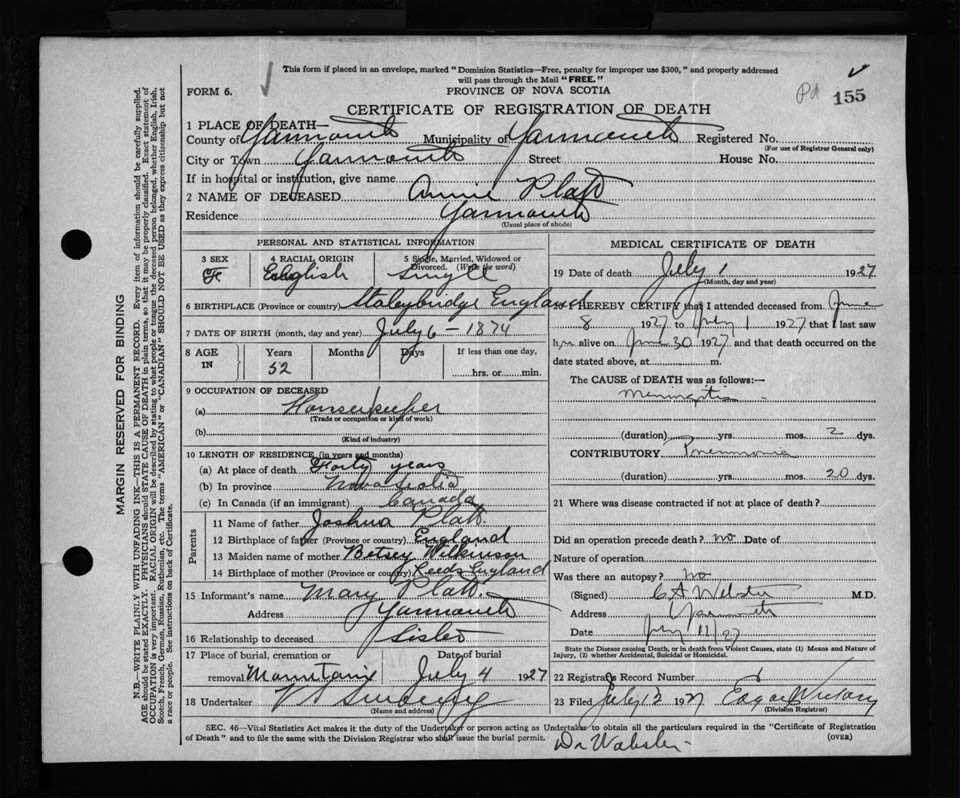 This form if placed in an envelope, marked "Dominion Statistics—Free, penalty for improper use $300," and properly addressed
will pass through the Mail "FREE."
FORM 6.
PROVINCE OF NOVA SCOTIA
Pd 155
CERTIFICATE OF REGISTRATION OF DEATH
1 PLACE OF DEATH—
County of Yarmouth Municipality of Yarmouth Registered No.
(For use of Registrar General only)
City or Town Yarmouth Street House No.
If in hospital or institution, give name
2 NAME OF DECEASED Annie Platt
Residence Yarmouth
(Usual place of abode)
MARGIN RESERVED FOR BINDING
N.B.—WRITE PLAINLY WITH UNFADING INK—THIS IS A PERMANENT RECORD. Every item of information should be carefully supplied.
AGE should be stated EXACTLY. PHYSICIANS should STATE CAUSE OF DEATH in plain terms, so that it may be properly classified. Exact statement of
OCCUPATION is very important. RACIAL ORIGIN will be described by stating to what people or tongue the deceased person belonged, whether English, Irish,
Scotch, French, German, Russian, Ruthenian, etc. The terms "AMERICAN" or "CANADIAN" SHOULD NOT BE USED as they express citizenship but not
a race or people. See instructions on back of Certificate.
PERSONAL AND STATISTICAL INFORMATION
3 SEX 4 RACIAL ORIGIN 5 Single, Married, Widowed or
Divorced. (Write the word)
F English Single
6 BIRTHPLACE (Province or country) Staleybridge England
7 DATE OF BIRTH (month, day and year) July 6 - 1874
8 AGE IN Years Months Days If less than one day,
52 hrs. or min.
9 OCCUPATION OF DECEASED
(a) Housekeeper
(Trade or occupation or kind of work)
(b)
(Kind of industry)
10 LENGTH OF RESIDENCE (in years and months)
(a) At place of death Forty years
(b) In province Nova Scotia
(c) In Canada (if an immigrant) Canada
Parents
11 Name of father Joshua Platt
12 Birthplace of father (Province or country) England
13 Maiden name of mother Betsey Wilkinson
14 Birthplace of mother (Province or country) Leeds England
15 Informant's name Mary Platt
Address Yarmouth
16 Relationship to deceased Sister
17 Place of burial, cremation or Date of burial
removal Mountain July 4 1927
18 Undertaker V Sweeny
(Name and address)
MEDICAL CERTIFICATE OF DEATH
19 Date of death July 1 1927
(Month, day and year)
20 I HEREBY CERTIFY that I attended deceased from June
8 1927 to July 1 1927 that I last saw
him alive on June 30 1927 and that death occurred on the
date stated above, at m.
The CAUSE of DEATH was as follows:—
Meningitis
(duration) yrs. mos. 2 dys.
CONTRIBUTORY Pneumonia
(duration) yrs. mos. 20 dys.
21 Where was disease contracted if not at place of death?
Did an operation precede death? no Date of
Nature of operation
Was there an autopsy? no
(Signed) C A Webster M.D.
Address Yarmouth
Date July 11/27
State the Disease causing Death, or in death from Violent Causes, state (1) Means and Nature of
Injury, (2) whether Accidental, Suicidal or Homicidal.
22 Registrars Record Number 1
23 Filed July 12 1927 Edgar
(Division Registrar)
SEC. 46—Vital Statistics Act makes it the duty of the Undertaker or person acting as Undertaker to obtain all the particulars required in the "Certificate of Registration
of Death" and to file the same with the Division Registrar who shall issue the burial permit. (OVER)
Dr Webster